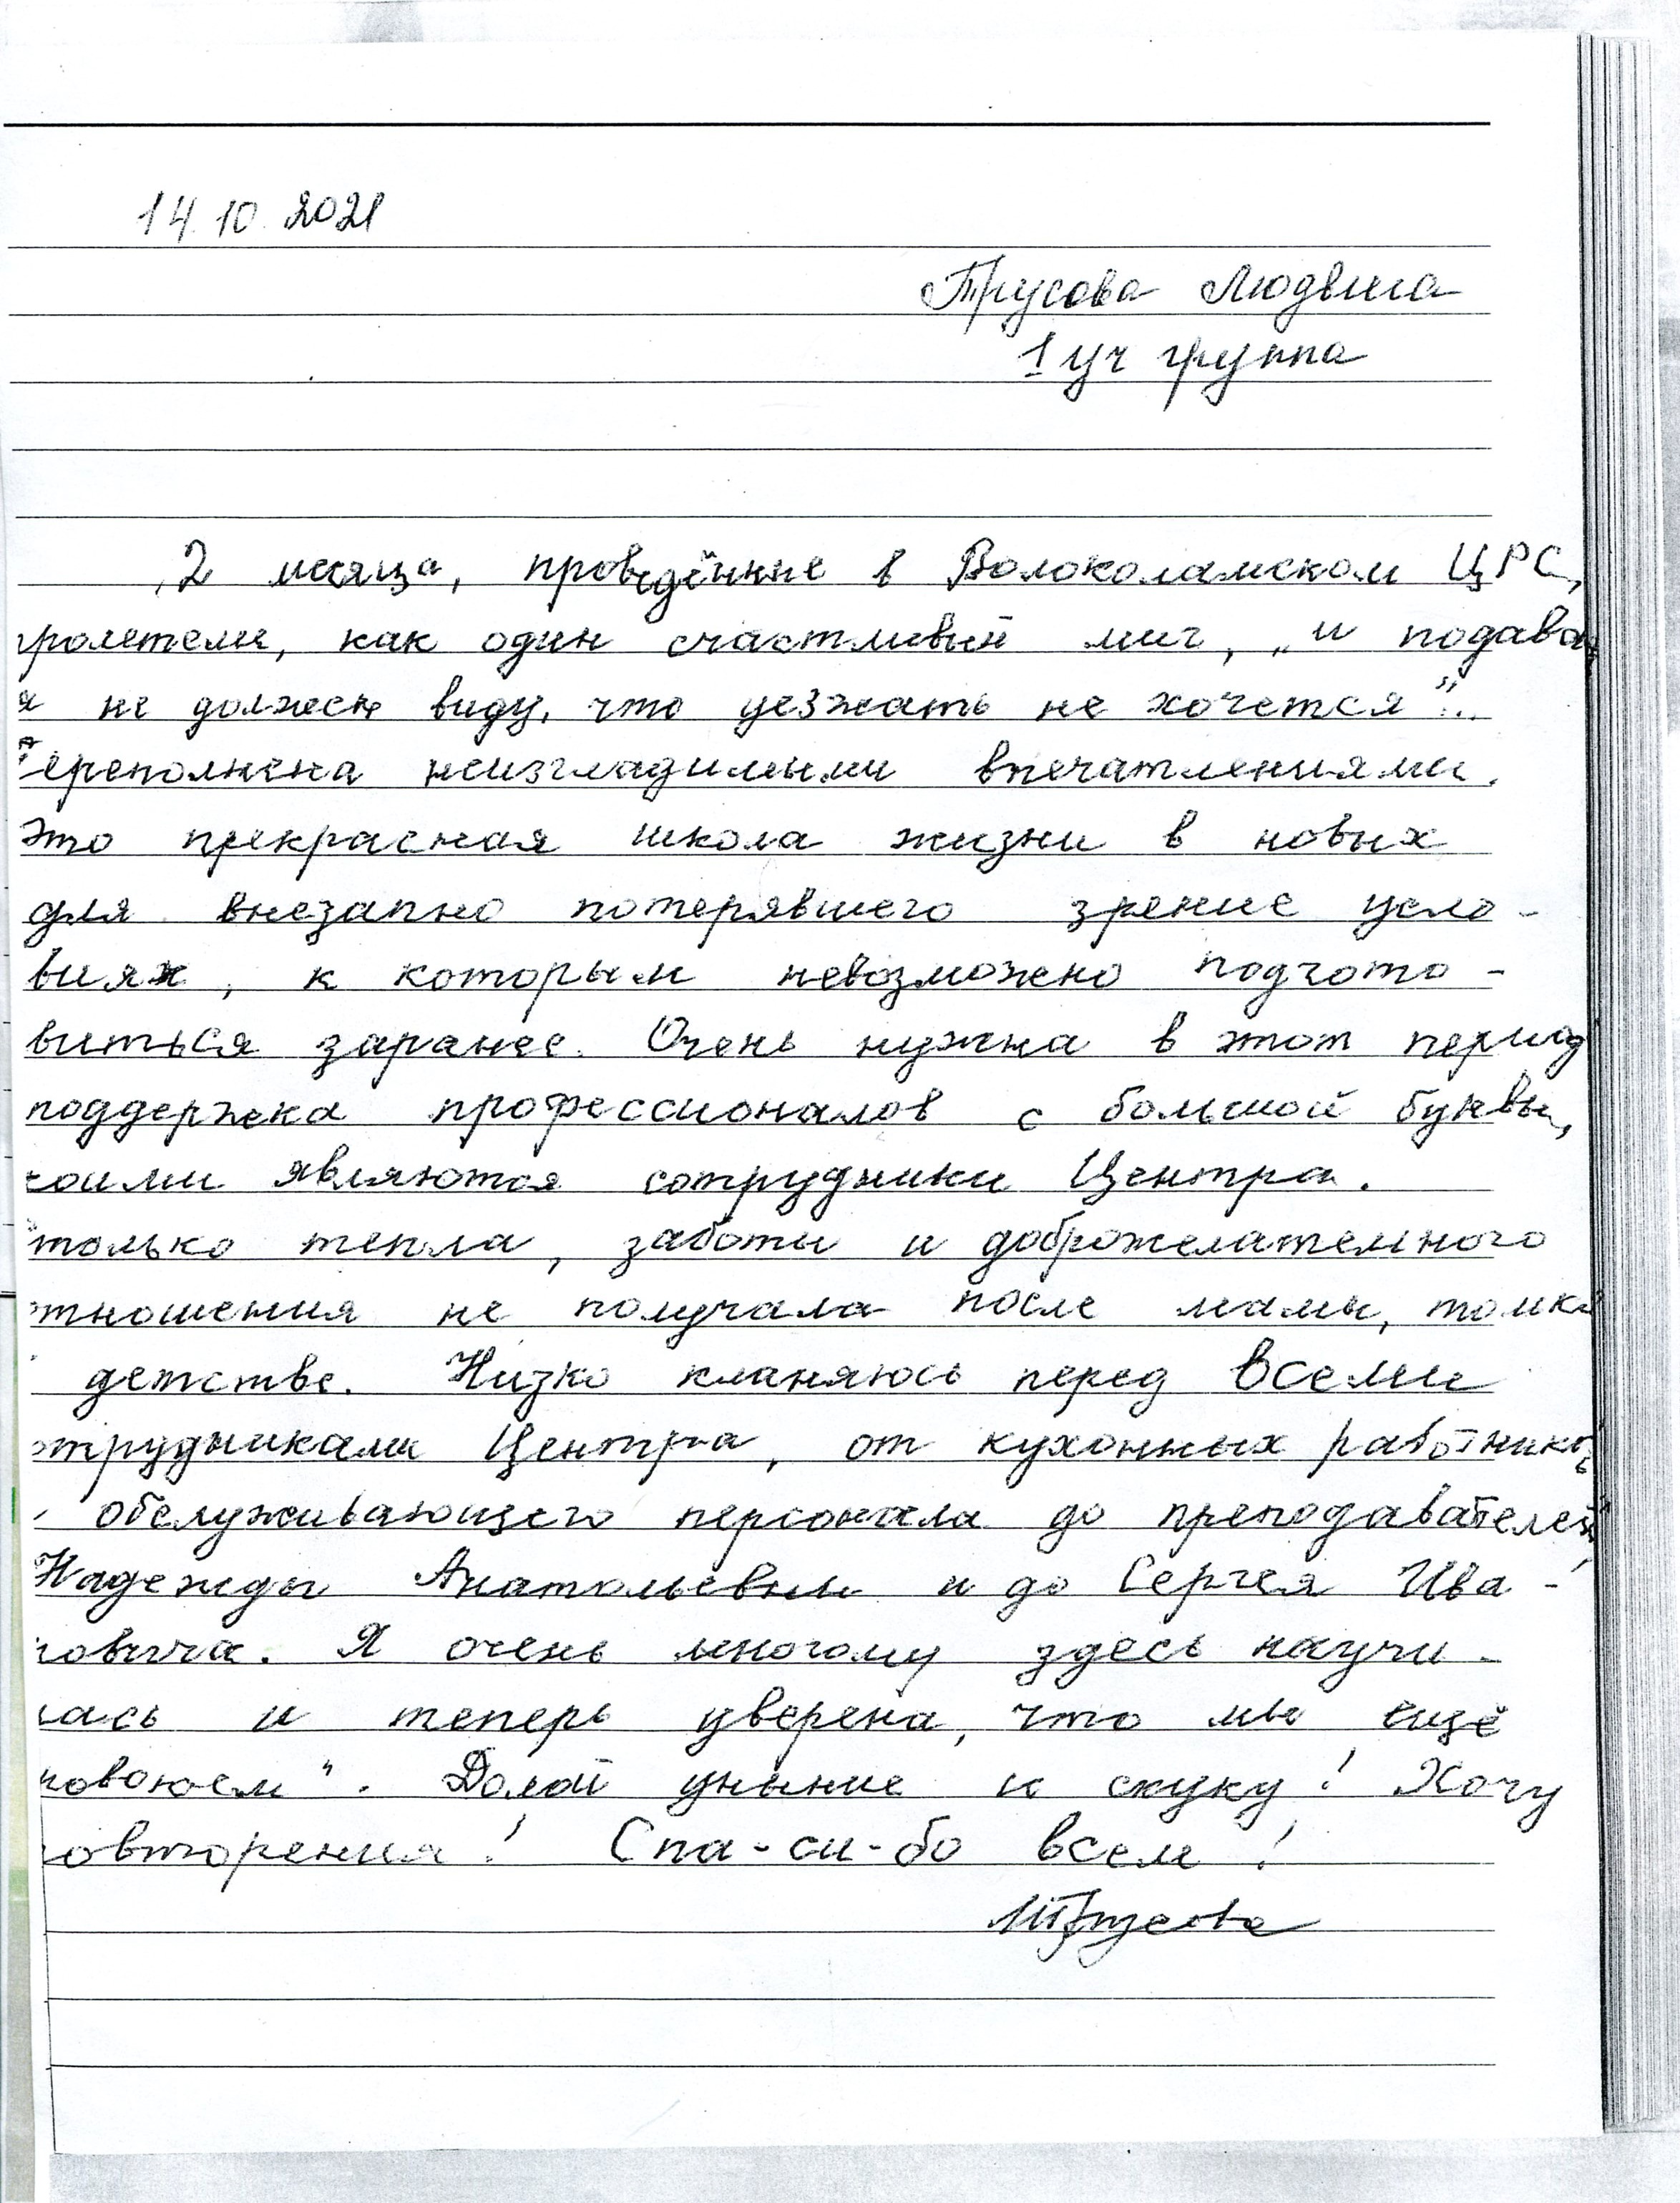 14.10.2021
Трусова Людвига
1 уч группа
2 месяца, проведённые в Волоколамском ЦРС,
пролетели, как один счастливый миг, „и подавать
я не должен виду, что уезжать не хочется"...
Переполнена неизгладимыми впечатлениями.
Это прекрасная школа жизни в новых
для внезапно потерявшего зрение усло-
виях, к которым невозможно подгото-
виться заранее. Очень нужна в этот период
поддержка профессионалов с большой буквы,
коими являются сотрудники Центра.
Столько тепла, заботы и доброжелательного
отношения не получала после мамы, только
детстве. Низко кланяюсь перед всеми
сотрудниками Центра, от кухонных работников
обслуживающего персонала до преподавателей
Надежды Анатольевны и до Сергея Ива-
новича. Я очень многому здесь научи-
лась и теперь уверена, что мы ещё
повоюем". Долой уныние и скуку! Хочу
повторения! Спа-си-бо всем!
ЛТрусова